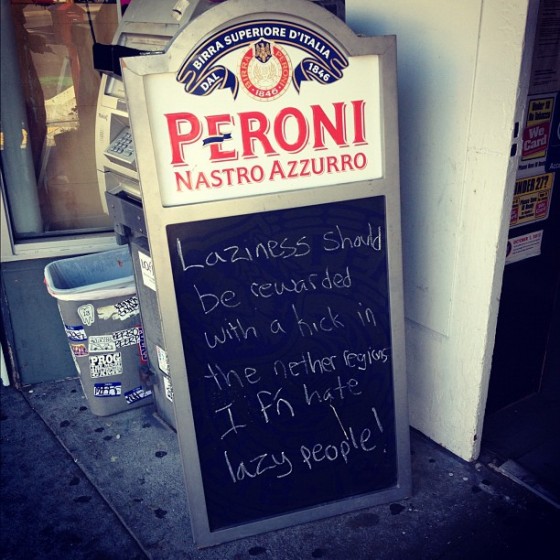 BIRRA SUPERIORE D'ITALIA
DAL 1846
BIRRA PERONI
1846
PERONI
NASTRO AZZURRO
Laziness should
be rewarded
with a kick in
the nether regions
I F'n hate
lazy people!
PROG
We
Card
UNDER 27?